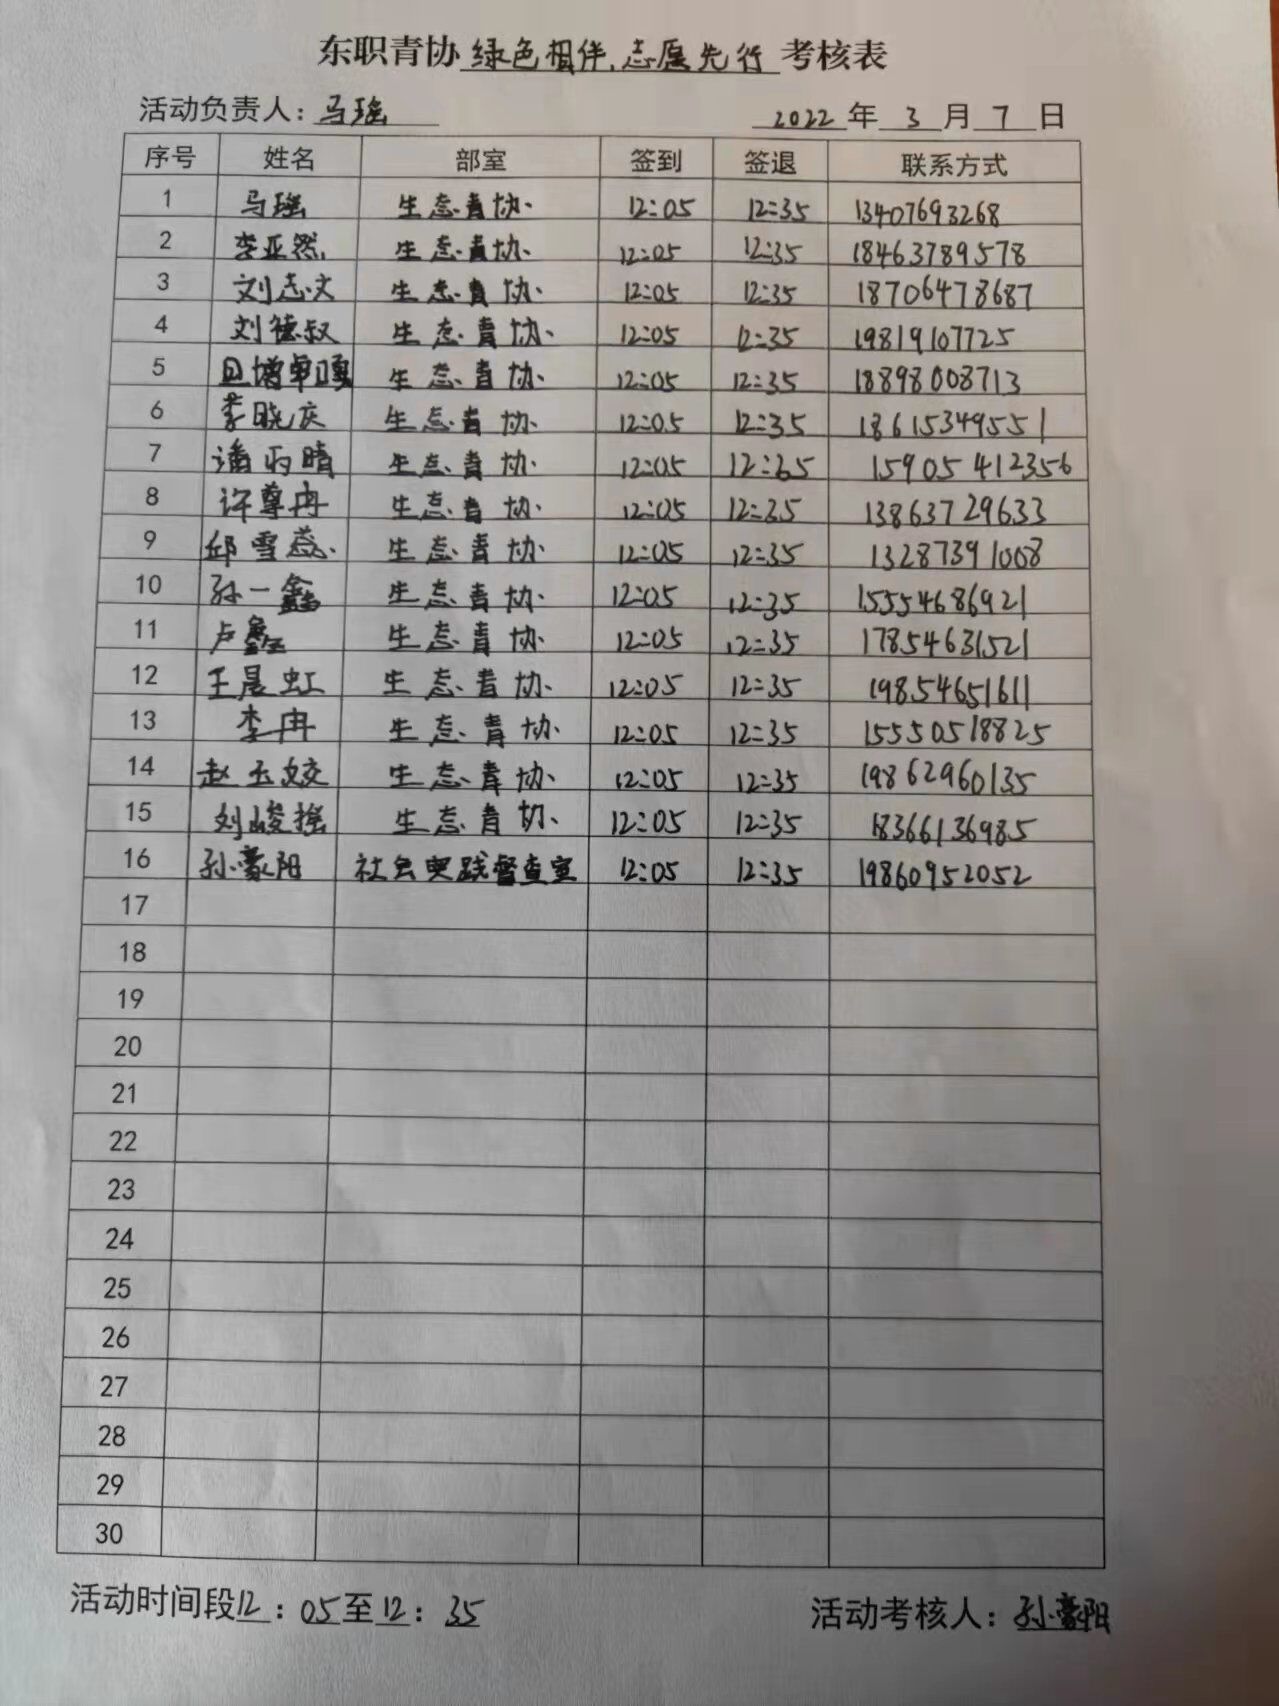 东职青协 绿色相伴,志愿先行 考核表
活动负责人: 马瑶 2022 年 3 月 7 日
序号 姓名 部室 签到 签退 联系方式
1 马瑶 生态青协 12:05 12:35 13407693268
2 李亚然 生态青协 12:05 12:35 18463789578
3 刘志文 生态青协 12:05 12:35 18706478687
4 刘德叔 生态青协 12:05 12:35 19819107725
5 旦增卓嘎 生态青协 12:05 12:35 18898008713
6 李晓庆 生态青协 12:05 12:35 18615349551
7 潘雨晴 生态青协 12:05 12:35 15905412356
8 许尊冉 生态青协 12:05 12:35 13863729633
9 邱雪蕊 生态青协 12:05 12:35 13287391008
10 孙一鑫 生态青协 12:05 12:35 15554686921
11 卢鑫 生态青协 12:05 12:35 17854631521
12 王晨虹 生态青协 12:05 12:35 19854651611
13 李冉 生态青协 12:05 12:35 15550518825
14 赵玉姣 生态青协 12:05 12:35 19862960135
15 刘峻摇 生态青协 12:05 12:35 18366136985
16 孙豪阳 社会实践督查室 12:05 12:35 19860952052
17
18
19
20
21
22
23
24
25
26
27
28
29
30
活动时间段12:05至12:35 活动考核人: 孙豪阳